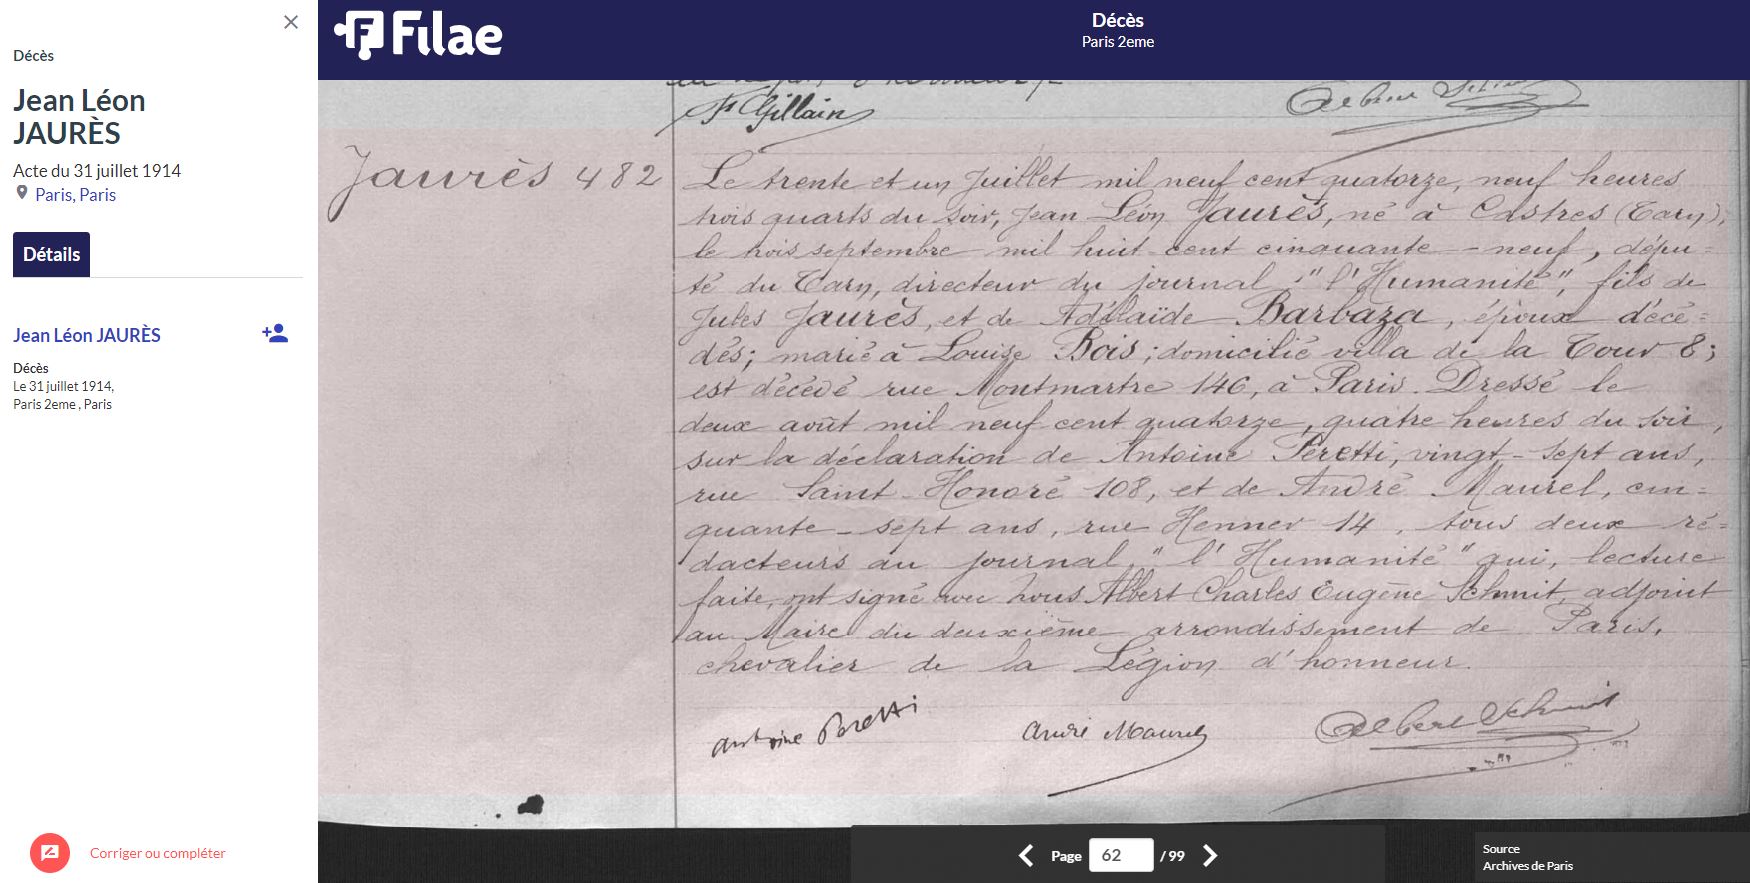 Décès
Jean Léon
JAURÈS
Acte du 31 juillet 1914
Paris, Paris
Détails
Jean Léon JAURÈS
Décès
Le 31 juillet 1914,
Paris 2eme , Paris
Corriger ou compléter
Filae
Décès
Paris 2eme
Gillain
Jaurès 482
Le trente et un Juillet mil neuf cent quatorze, neuf heures
trois quarts du soir, Jean Léon Jaurès, né à Castres (Tarn),
le trois septembre mil huit cent cinquante-neuf, dépu=
té du Tarn, directeur du journal "l'Humanité", fils de
Jules Jaurès, et de Adélaïde Barbaza, époux décé=
dés; marié à Louise Bois; domicilié villa de la Tour 8;
est décédé rue Montmartre 146, à Paris. Dressé le
deux août mil neuf cent quatorze, quatre heures du soir,
sur la déclaration de Antoine Peretti, vingt-sept ans,
rue Saint-Honoré 108, et de André Maurel, cin=
quante-sept ans, rue Henner 14, tous deux ré=
dacteurs au journal "l'Humanité" qui, lecture
faite, ont signé avec nous Albert Charles Eugène Schmit, adjoint
au Maire du deuxième arrondissement de Paris,
chevalier de la Légion d'honneur.
Antoine Peretti André Maurel Albert Schmit
Page 62 / 99
Source
Archives de Paris